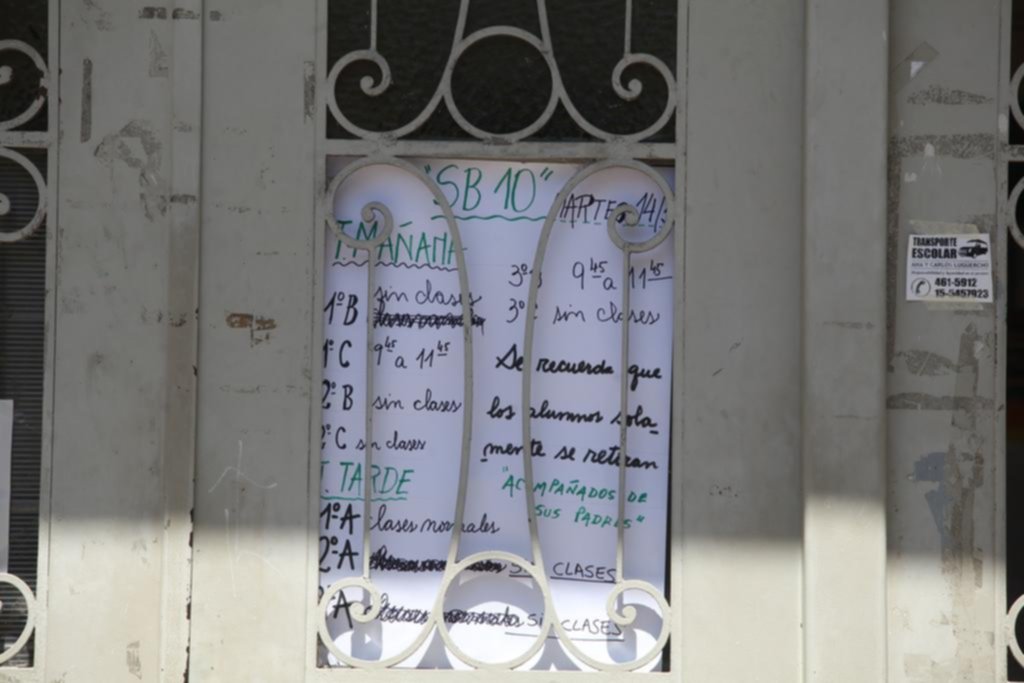 "SB 10"
MARTES 14/3
T. MAÑANA
1º B sin clases
1º C 9 45 a 11 45
2º B sin clases
2º C sin clases
T. TARDE
1º A clases normales
2º A SIN CLASES
A SIN CLASES
9 45 a 11 45
3º C sin clases
Se recuerda que
los alumnos sola_
mente se retiran
"ACOMPAÑADOS DE
SUS PADRES"
TRANSPORTE
ESCOLAR
461-5912
15-5457923